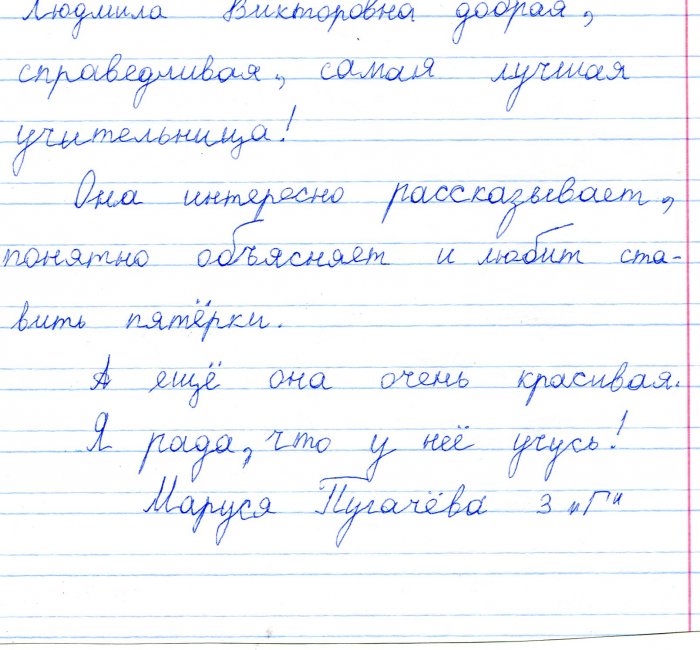 Людмила Викторовна добрая,
справедливая, самая лучшая
учительница!
Она интересно рассказывает,
понятно объясняет и любит ста-
вить пятёрки.
А ещё она очень красивая.
Я рада, что у неё учусь!
Маруся Пугачёва 3 „Г"